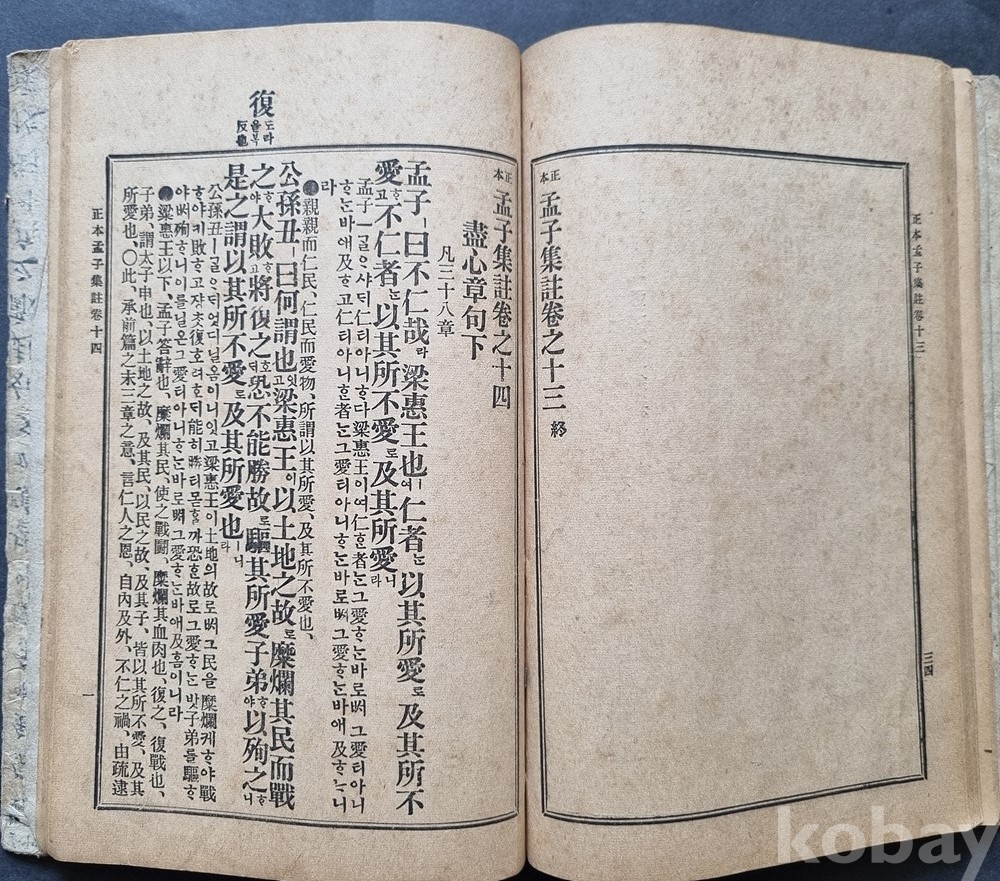 正本孟子集註卷十三
三四
正本 孟子集註卷之十三 終
正本 孟子集註卷之十四
盡心章句下
凡三十八章
孟子ㅣ曰不仁哉라梁惠王也ㅣ여仁者ᄂᆞᆫ以其所愛로及其所不
愛ᄒᆞ고不仁者ᄂᆞᆫ以其所不愛로及其所愛니라
孟子ㅣᄀᆞᆯᄋᆞ샤ᄃᆡ仁티아니ᄒᆞ다梁惠王이여仁ᄒᆞᆫ者ᄂᆞᆫ그愛ᄒᆞᄂᆞᆫ바로ᄡᅥ그愛티아니
ᄒᆞᄂᆞᆫ바애及ᄒᆞ고仁티아니ᄒᆞᆫ者ᄂᆞᆫ그愛티아니ᄒᆞᄂᆞᆫ바로ᄡᅥ그愛ᄒᆞᄂᆞᆫ바애及ᄒᆞᄂᆞ니
라
親親而仁民、仁民而愛物、所謂以其所愛、及其所不愛也、
公孫丑ㅣ曰何謂也ㅣ잇고梁惠王이以土地之故로糜爛其民而戰
之ᄒᆞ야大敗ᄒᆞ고將復之호ᄃᆡ恐不能勝故로驅其所愛子弟ᄒᆞ야以殉之ᄒᆞ니
是之謂以其所不愛로及其所愛也ㅣ니라
復 도라올복 反也
公孫丑ㅣᄀᆞᆯ오ᄃᆡ엇디닐옴이니잇고梁惠王이土地의故로ᄡᅥ그民을糜爛케ᄒᆞ야戰
ᄒᆞ야키敗ᄒᆞ고쟝ᄎᆞᆺ復호려호ᄃᆡ能히勝티몯ᄒᆞᆯ가恐ᄒᆞᆫ故로그愛ᄒᆞᄂᆞᆫ밧子弟를驅ᄒᆞ
야ᄡᅥ殉ᄒᆞ니이를닐온그愛티아니ᄒᆞᄂᆞᆫ바로ᄡᅥ그愛ᄒᆞᄂᆞᆫ바애及홈이니라
梁惠王以下、孟子答辭也、糜爛其民、使之戰鬪、糜爛其血肉也、復之、復戰也、
子弟、謂太子申也、以土地之故、及其民、以民之故、及其子、皆以其所不愛、及其
所愛也、〇此、承前篇之末三章之意、言仁人之恩、自內及外、不仁之禍、由疏逮
正本孟子集註卷十四
一
kobay